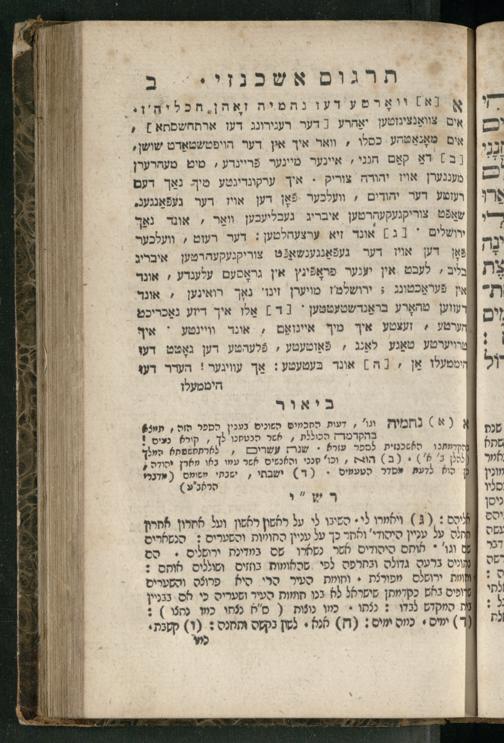 תרגום אשכנזי · ב
א [א] ווארטע דעז נחמיה זאהן חכליה'ז ·
אים צוואנציגזטען יאהרע [דער רעגירונג דעז ארתחשסתא] ,
אים מאנאטהע כסלו , וואר איך אין דער הויפטשטאדט שושן,
[ב] דא קאם חנני , איינער מיינער פריינדע , מיט מעהרערן
מעננערן אויז יהודה צוריק · איך ערקונדיגטע מיך נאך דעם
רעזטע דער יהודים , וועלכער פאן דען אויז דער געפאנגענ-
שאפט צוריקגעקעהרטען איבריג געבליעבען וואר , אונד נאך
ירושלים · [ג] אונד זיא ערצעהלטען : דער רעזט , וועלכער
פאן דען אויז דער געפאנגענשאפט צוריקגעקעהרטען איבריג
בליב , לעבט אין יענער פראפינץ אין גראסעם עלענדע , אונד
אין פעראכטונג ; ירושלם'ז מויערן זינד נאך רואינען , אונד
דעזזען טהארע בראנדשטעטטען · [ד] אלז איך דיזע נאכריכט
הערטע , זעצטע איך מיך איינזאם , אונד וויינטע · איך
טרויערטע טאגע לאנג , פאזטעטע , פלעהטע דען גאטט דעז
היממעלז אן , [ה] אונד בעטעטע : אך עוויגער ! העדר דעז
היממעלז
ביאור
א (א) נחמיה וגו' , דעות החכמים השונים בענין הספר הזה , תמצא
בהקדמה הכוללת , אשר הבטחנו לך , קורא נעים !
בהקדמתנו האשכנזית לספר עזרא · שנת עשרים , לארתחשסתא המלך
(להלן ב' א') · (ב) הוא , וכו' חנני והאנשים אשר עמו באו מארץ יהודה ,
כן הוא לדעת מסדר הטעמים · (ד) ישבתי , ישבתי משומם (מדברי
הראב"ע)
רש"י
אליהם : (ג) ויאמרו לי · השיבו לי על ראשון ראשון ועל אחרון אחרון
תחלה על עניין היהודי' ואחר כך על עניין החומות והשערים : הנשארים
שם וגו' · אותם היהודים אשר נשארו שם במדינת ירושלים · הם
נתונים ברעה גדולה ובחרפה לפי שהאומות בוזזים ושוללים אותם :
וחומת ירושלם מפורצת · וחומת העיר הרי היא פרוצה והשערים
שרופים באש כקדמתן שישראל לא בנו חומות העיר ושעריה כי אם בבניין
בית המקדש לבדו : נצתו · כמו נוצתו ( ס"א נצתו כמו נתצו ) :
(ד) ימים · כמה ימים : (ה) אנא · לשון בקשה ותחנה : (ו) קשבת ·
כמו